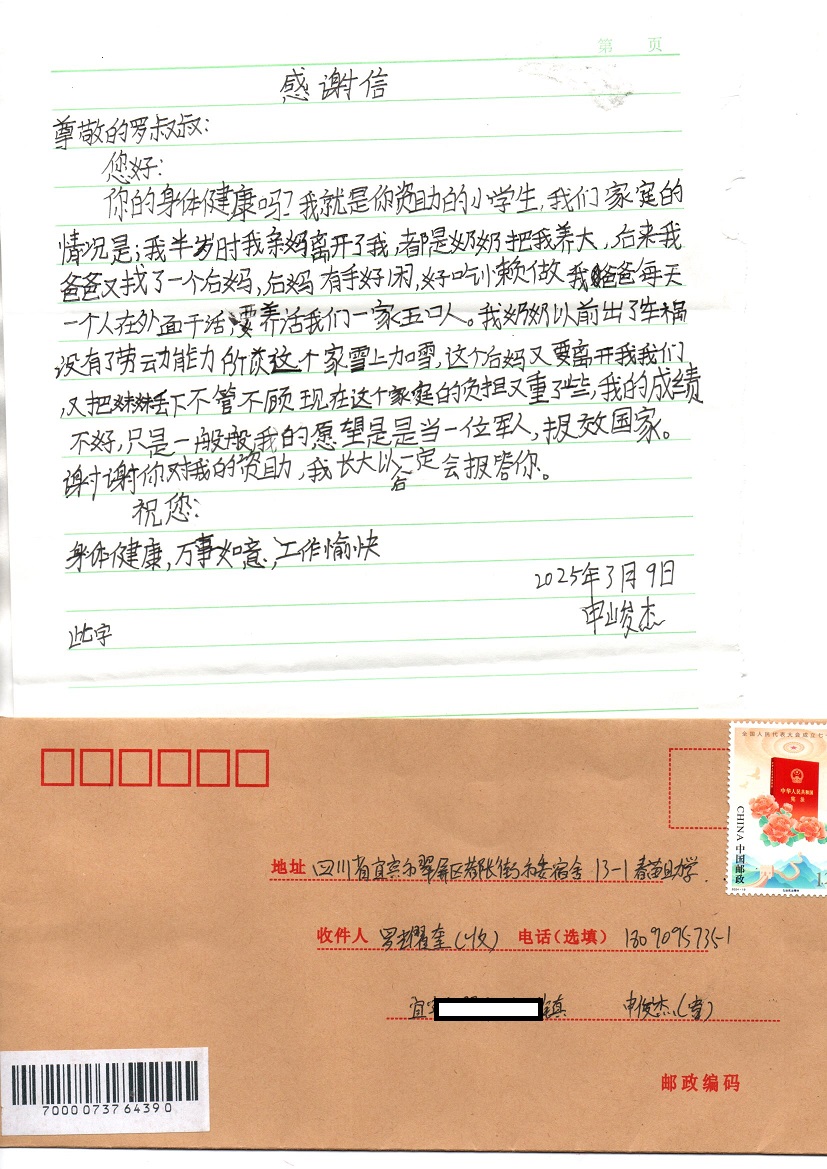 第 页
感谢信
尊敬的罗叔叔：
您好：
你的身体健康吗？我就是你资助的小学生，我们家庭的
情况是；我半岁时我亲妈离开了我，都是奶奶把我养大，后来我
爸爸又找了一个后妈，后妈有手好闲，好吃懒做 我爸爸每天
一个人在外面干活，要养活我们一家五口人。我奶奶以前出了车祸
没有了劳动能力 所以这个家雪上加雪，这个后妈又要离开我我们
又把妹妹丢下不管不顾 现在这个家庭的负担又重了些，我的成绩
不好，只是一般般 我的愿望是是当一位军人，报效国家。
谢谢你对我的资助，我长大以后一定会报答你。
祝您：
身体健康，万事如意，工作愉快
2025年3月9日
申峻杰
此字
全国人民代表大会成立七
中华人民共和国
宪法
CHINA 中国邮政
地址 四川省宜宾市翠屏区都长街市委宿舍 13-1 春苗助学
收件人 罗耀奎（收） 电话（选填） 13090957351
宜 镇 申俊杰（寄）
邮政编码
7000073764390